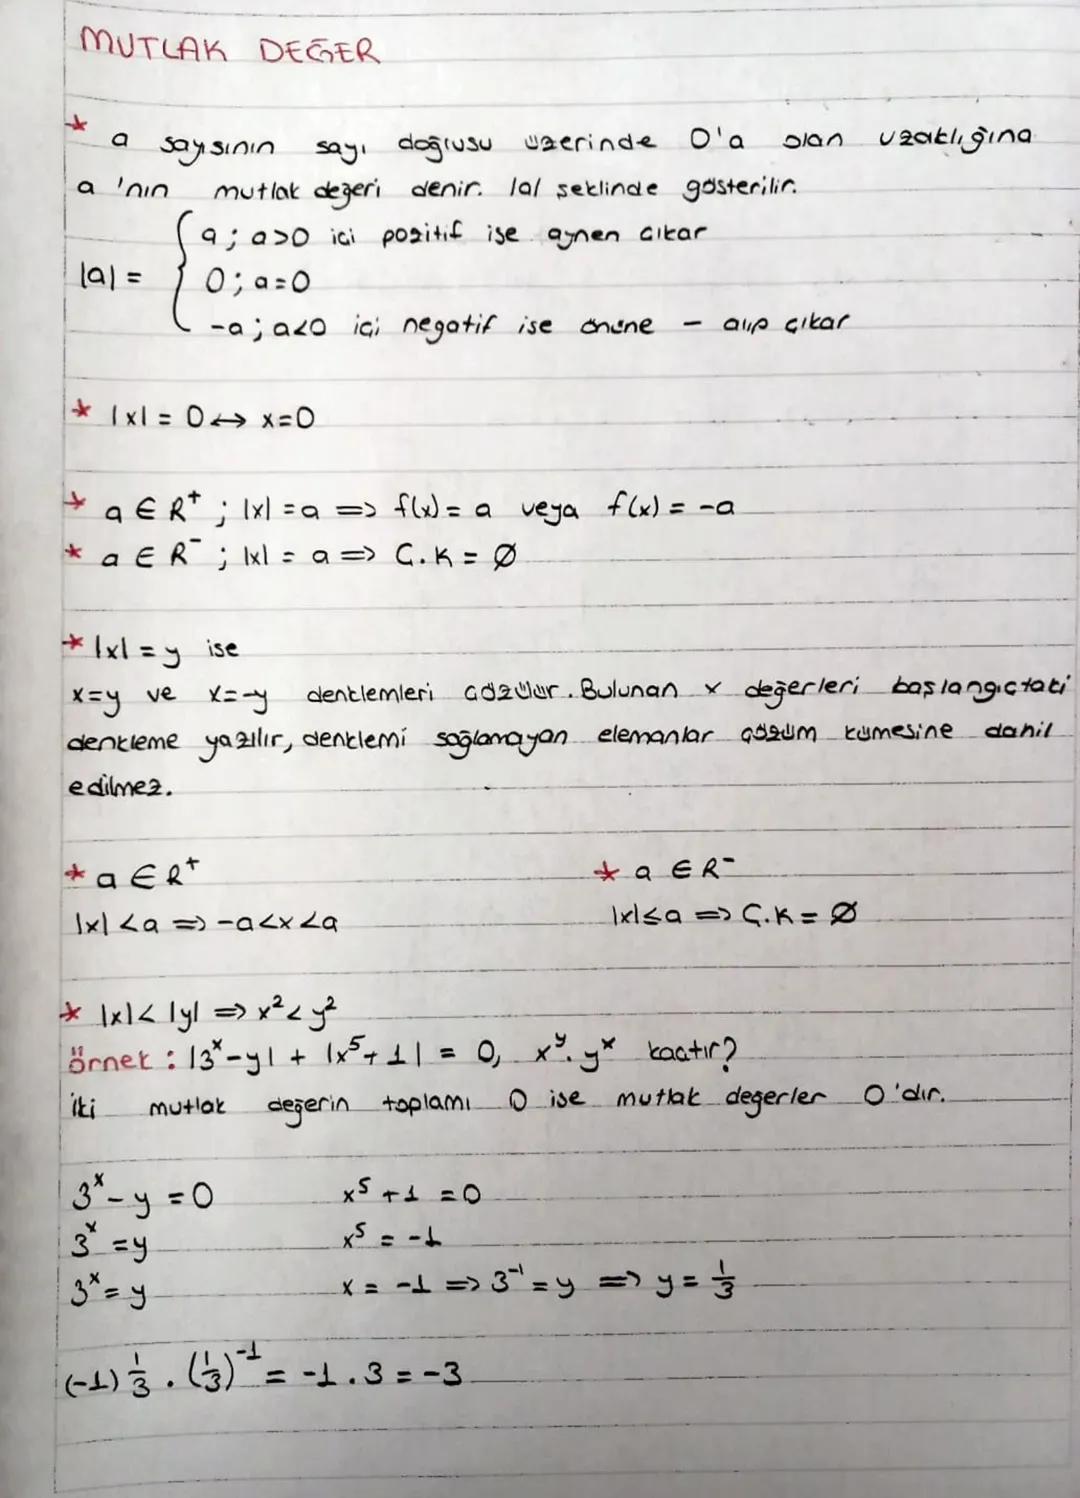 MUTLAK DEĞER
* a sayısının sayı doğrusu üzerinde 0'a olan uzaklığına
a 'nın mutlak değeri denir. |a| şeklinde gösterilir.
a ; a>0 içi pozitif ise aynen çıkar
|a| = { 0 ; a=0
-a ; a<0 içi negatif ise önüne - alıp çıkar
* |x| = 0 ↔ x=0
* a ∈ R⁺ ; |x| = a => f(x) = a veya f(x) = -a
* a ∈ R⁻ ; |x| = a => Ç.K = Ø
* |x| = y ise
x=y ve x=-y denklemleri çözülür. Bulunan x değerleri başlangıçtaki
denkleme yazılır, denklemi sağlamayan elemanlar çözüm kümesine dahil
edilmez.
* a ∈ R⁺ * a ∈ R⁻
|x| < a => -a<x<a |x|≤a => Ç.K = Ø
* |x| < |y| => x² < y²
örnek : |3ˣ-y| + |x⁵+1| = 0, xʸ. yˣ kaçtır?
İki mutlak değerin toplamı 0 ise mutlak değerler 0'dır.
3ˣ - y = 0 x⁵ + 1 = 0
3ˣ = y x⁵ = -1
3ˣ = y x = -1 => 3⁻¹ = y => y = 1/3
(-1) 1/3 . (1/3)⁻¹ = -1 . 3 = -3